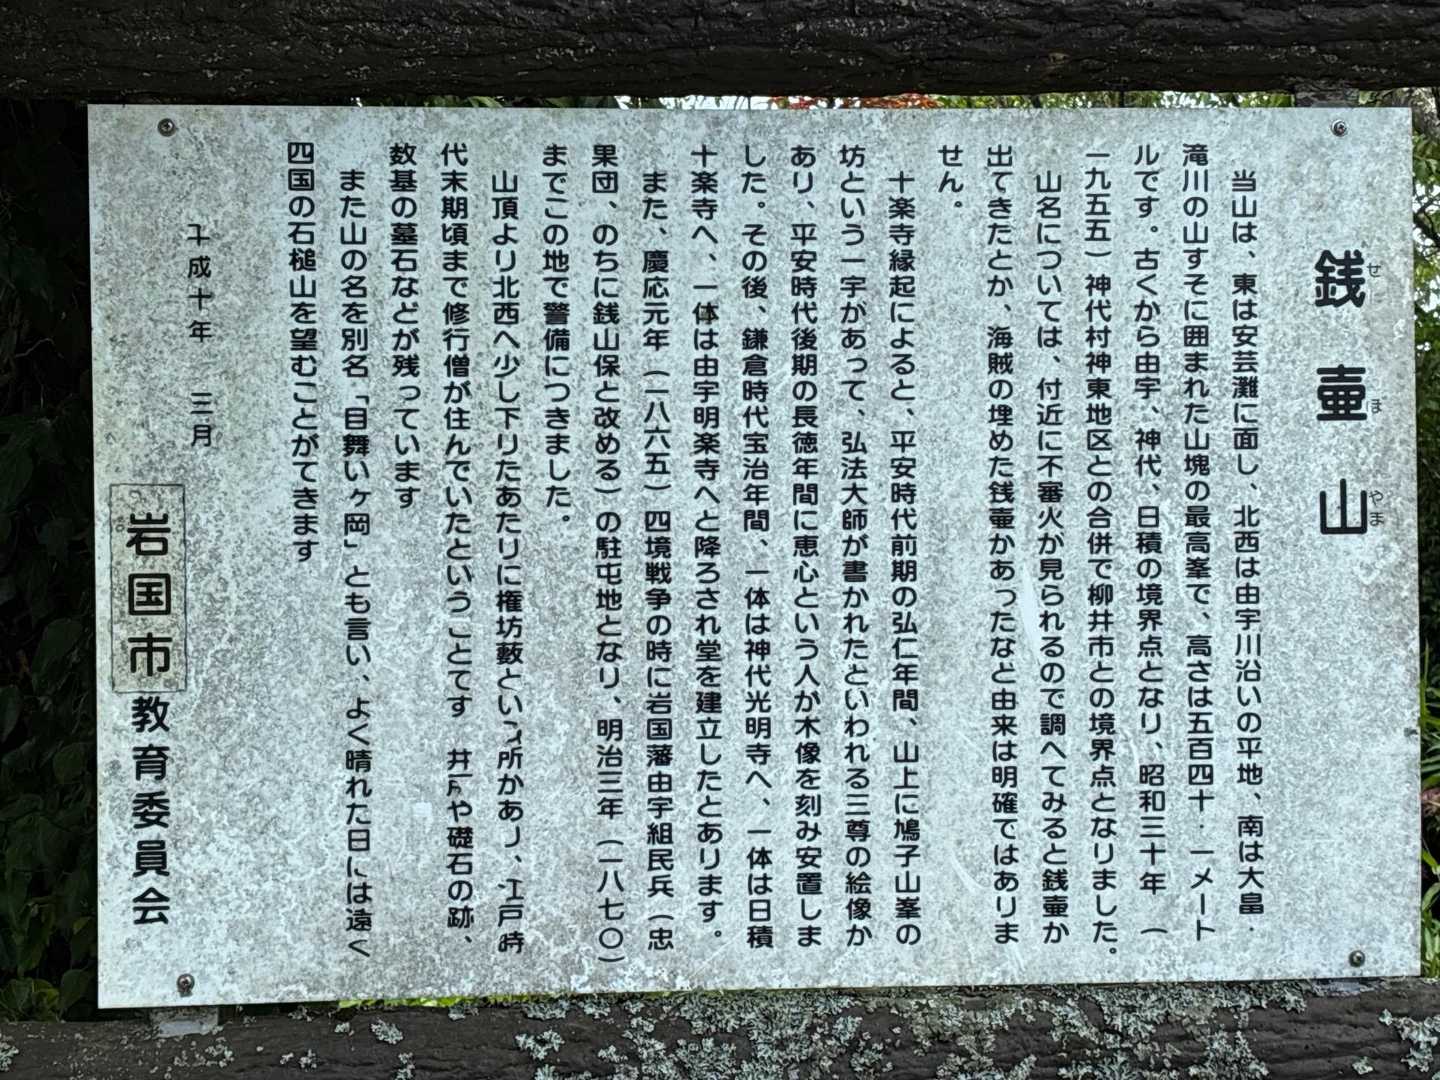 銭壷山
せぼやま
当山は、東は安芸灘に面し、北西は由宇川沿いの平地、南は大畠・
滝川の山すそに囲まれた山塊の最高峯で、高さは五百四十・一メート
ルです。古くから由宇、神代、日積の境界点となり、昭和三十年（
一九五五）神代村神東地区との合併で柳井市との境界点となりました。
山名については、付近に不審火が見られるので調へてみると銭壷か
出てきたとか、海賊の埋めた銭壷かあったなど由来は明確てはありま
せん。
十楽寺縁起によると、平安時代前期の弘仁年間、山上に鳩子山峯の
坊という一宇があって、弘法大師が書かれたといわれる三尊の絵像か
あり、平安時代後期の長徳年間に恵心という人か木像を刻み安置しま
した。その後、鎌倉時代宝治年間、一体は神代光明寺へ、一体は日積
十楽寺へ、一体は由宇明楽寺へと降ろされ堂を建立したとあります。
また、慶応元年（一八六五）四境戦争の時に岩国藩由宇組民兵（忠
果団、のちに銭山保と改める）の駐屯地となり、明治三年（一八七〇）
までこの地で警備につきました。
山頂より北西へ少し下りたあたりに権坊藪という所かあり、江戸時
代末期頃まで修行僧が住んでいたということてす　井戸や礎石の跡、
数基の墓石などが残っています
また山の名を別名「目舞いヶ岡」とも言い、よく晴れた日には遠く
四国の石槌山を望むことがてきます
平成十年　三月
岩国市教育委員会